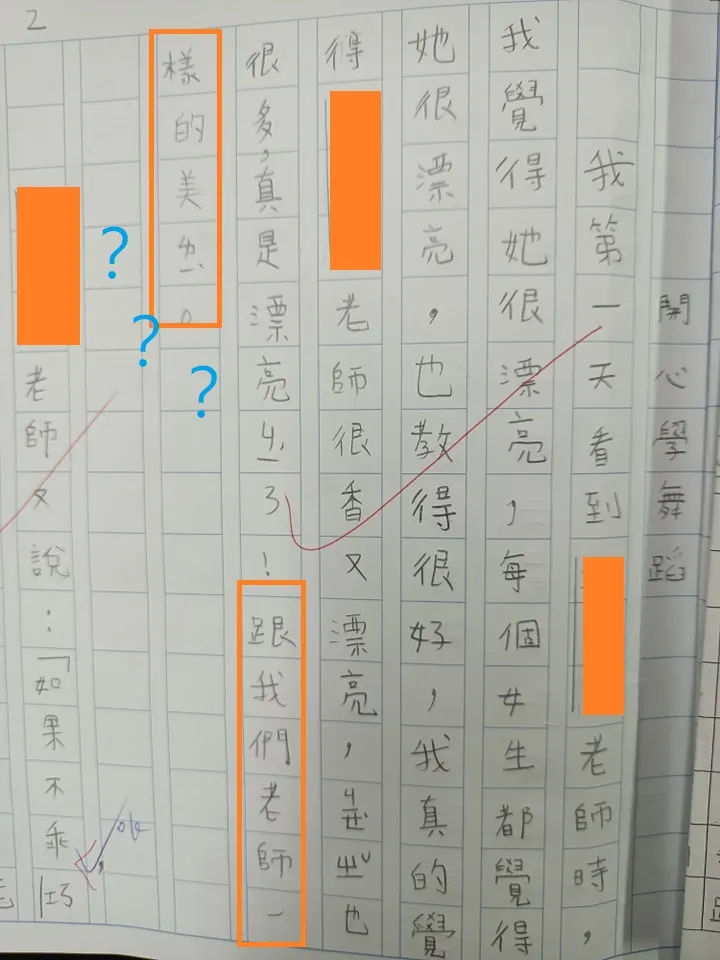 開心學舞蹈
我第一天看到老師時，
我覺得她很漂亮，每個女生都覺得，
她很漂亮，也教得很好，我真的覺
得老師很香又漂亮，也
很多，真是漂亮ㄐㄧˊ了！跟我們老師一
樣的美ㄌㄧˋ。
？
？
？
老師又說：「如果不乖，
2